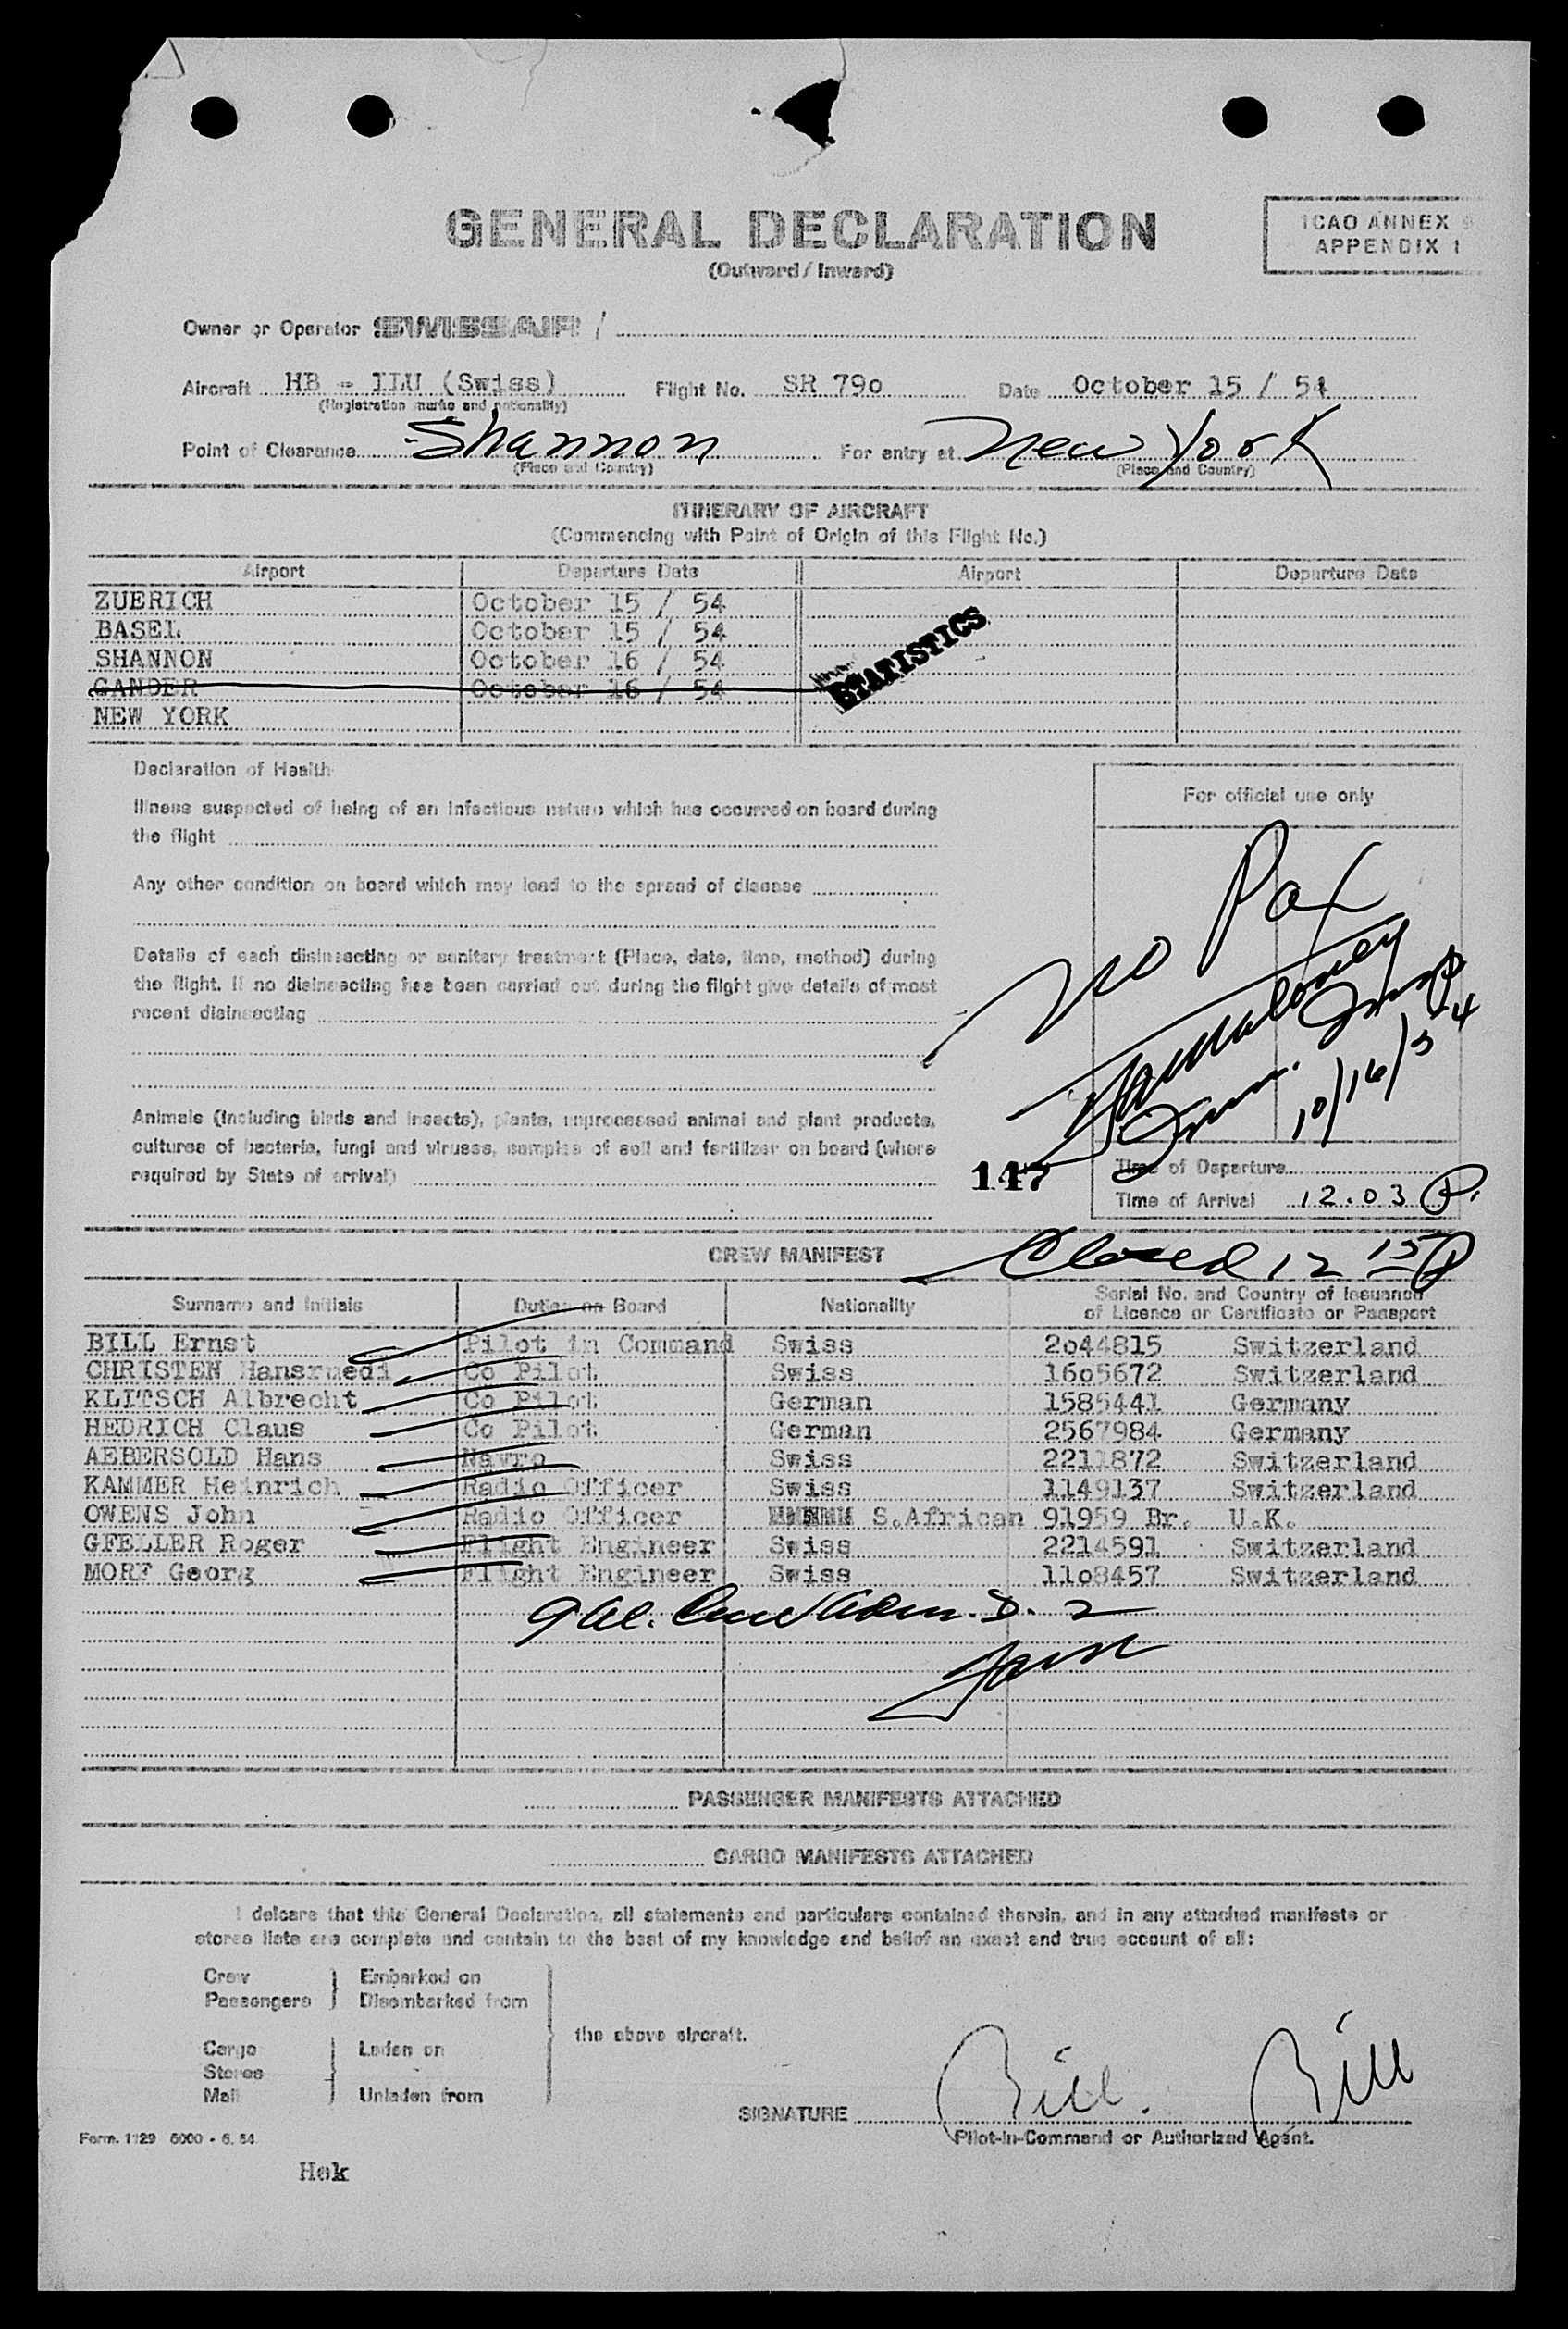 GENERAL DECLARATION
(Outward / Inward)
ICAO ANNEX 9
APPENDIX 1
Owner or Operator SWISSAIR /
Aircraft HB - ILU (Swiss) Flight No. SR 79o Date October 15 / 54
(Registration marks and nationality)
Point of Clearance Shannon For entry at New York
(Place and Country) (Place and Country)
ITINERARY OF AIRCRAFT
(Commencing with Point of Origin of this Flight No.)
Airport Departure Date Airport Departure Date
ZUERICH October 15 / 54
BASEL October 15 / 54
SHANNON October 16 / 54
GANDER October 16 / 54
NEW YORK
STATISTICS
Declaration of Health
Illness suspected of being of an infectious nature which has occurred on board during
the flight
Any other condition on board which may lead to the spread of disease
Details of each disinsecting or sanitary treatment (Place, date, time, method) during
the flight. If no disinsecting has been carried out during the flight give details of most
recent disinsecting
Animals (including birds and insects), plants, unprocessed animal and plant products,
cultures of bacteria, fungi and viruses, samples of soil and fertilizer on board (where
required by State of arrival)
For official use only
No Pax
Imm. Insp
10/16/54
147
Time of Departure
Time of Arrival 12.03 P.
CREW MANIFEST
Closed 12 15 P
Surname and Initials Duties on Board Nationality Serial No. and Country of Issuance
of Licence or Certificate or Passport
BILL Ernst Pilot in Command Swiss 2o44815 Switzerland
CHRISTEN Hansruedi Co Pilot Swiss 16o5672 Switzerland
KLITSCH Albrecht Co Pilot German 1585441 Germany
HEDRICH Claus Co Pilot German 2567984 Germany
AEBERSOLD Hans Navro Swiss 2211872 Switzerland
KAMMER Heinrich Radio Officer Swiss 1149137 Switzerland
OWENS John Radio Officer S.African 91959 Br. U.K.
GFELLER Roger Flight Engineer Swiss 2214591 Switzerland
MORF Georg Flight Engineer Swiss 11o8457 Switzerland
9 al. Crew Adm. D. 2
PASSENGER MANIFESTS ATTACHED
CARGO MANIFESTS ATTACHED
I delcare that this General Declaration, all statements and particulars contained therein, and in any attached manifests or
stores lists are complete and contain to the best of my knowledge and belief an exact and true account of all:
Crew Embarked on
Passengers Disembarked from
the above aircraft.
Cargo Laden on
Stores
Mail Unladen from
SIGNATURE Bill. Bill
Pilot-in-Command or Authorized Agent.
Form. 1129 5000 - 6. 54
Hek